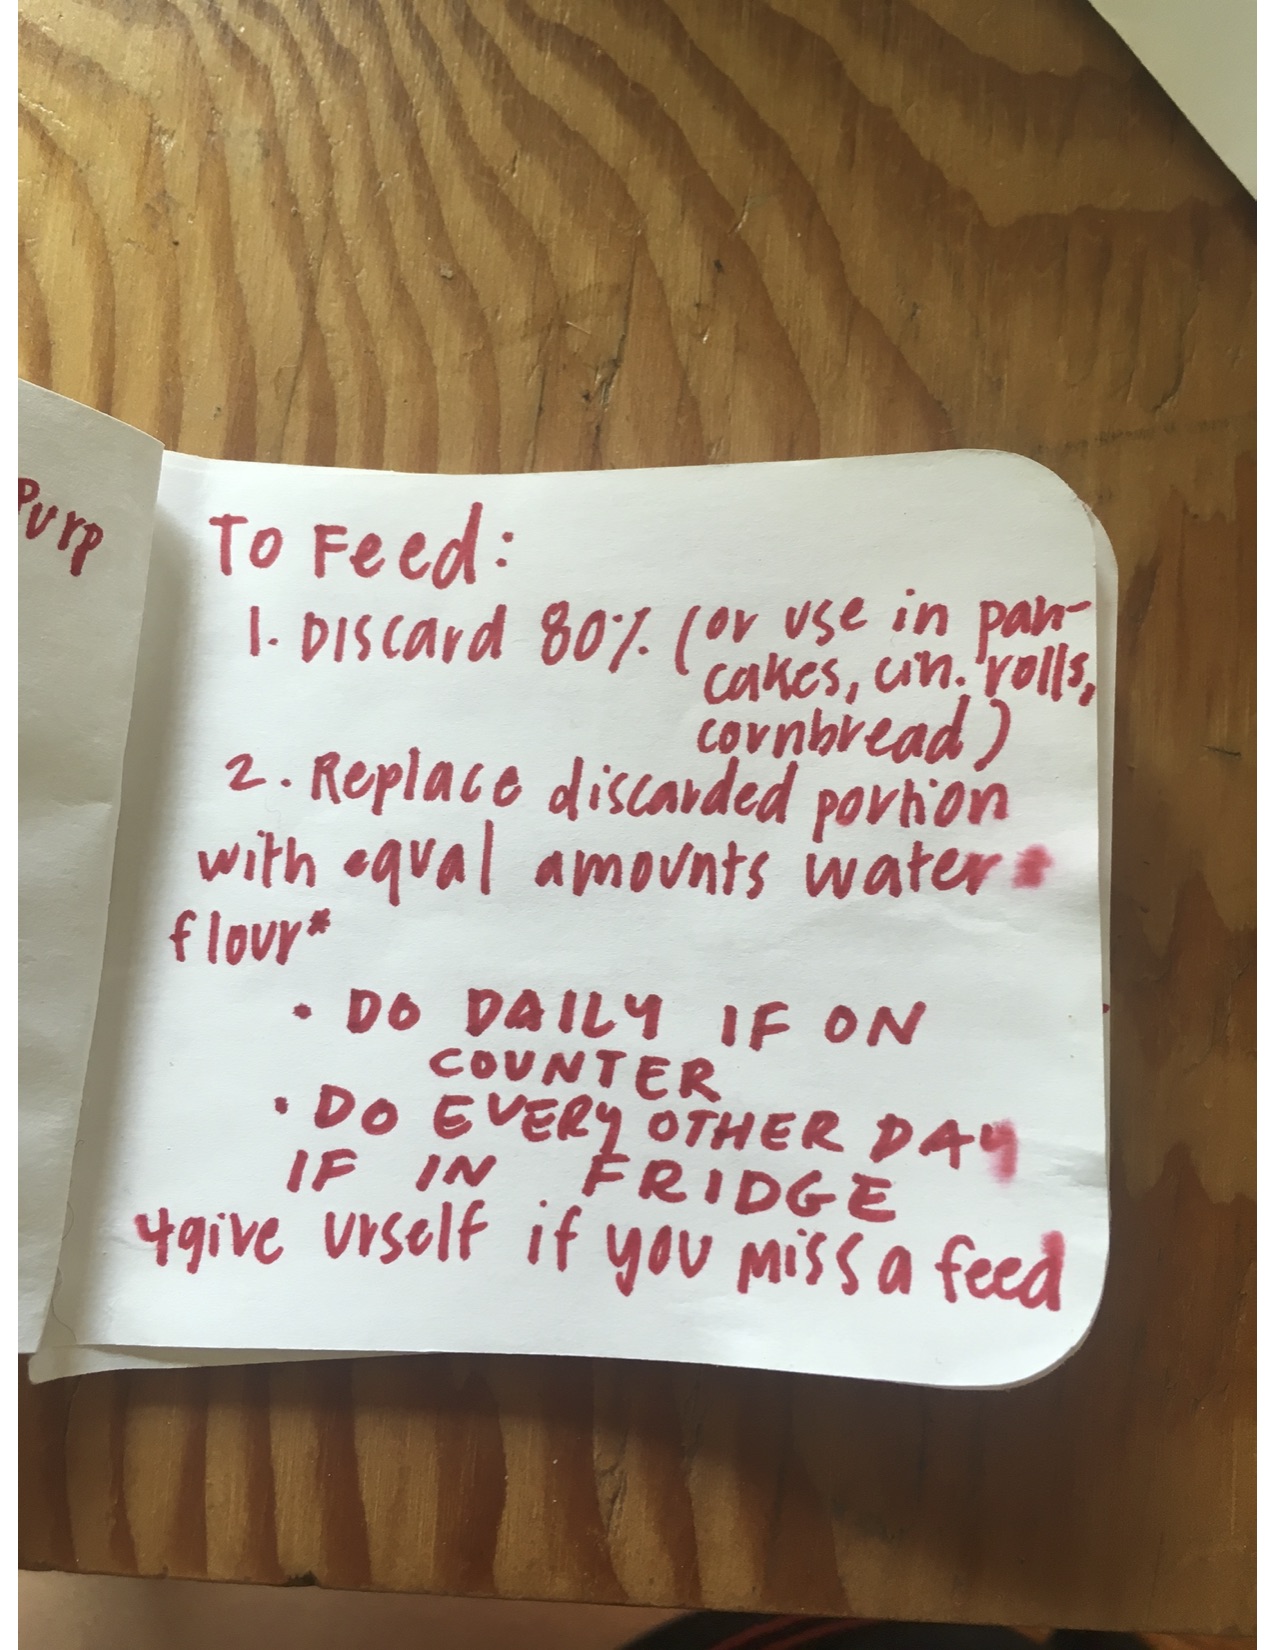 Purp
To Feed:
1. Discard 80% (or use in pan-
cakes, cin. rolls,
cornbread)
2. Replace discarded portion
with equal amounts water
flour*
• DO DAILY IF ON
COUNTER
• DO EVERY OTHER DAY
IF IN FRIDGE
4give urself if you miss a feed